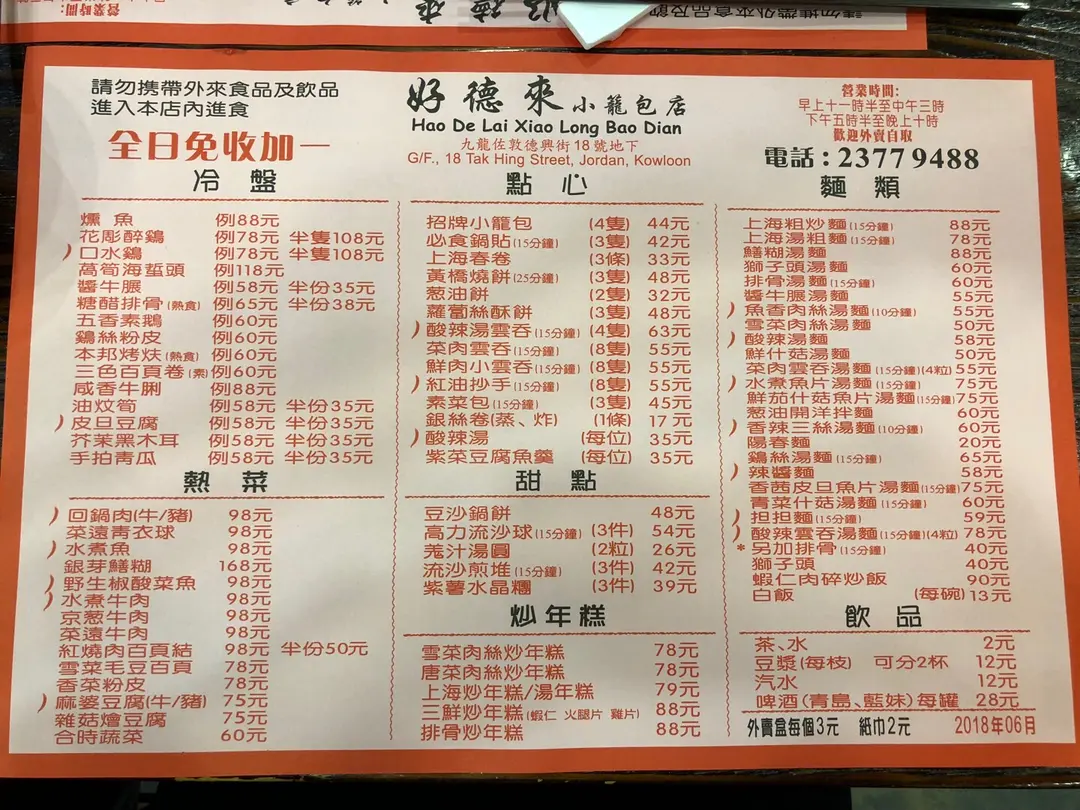 營業時間:
請勿攜帶外來食品及飲
請勿携帶外來食品及飲品
進入本店內進食
全日免收加一
好德來小籠包店
Hao De Lai Xiao Long Bao Dian
九龍佐敦德興街18號地下
G/F., 18 Tak Hing Street, Jordan, Kowloon
營業時間:
早上十一時半至中午三時
下午五時半至晚上十時
歡迎外賣自取
電話:2377 9488
冷盤
燻魚 例88元
花彫醉鷄 例78元 半隻108元
口水鷄 例78元 半隻108元
萵筍海蜇頭 例118元
醬牛腱 例58元 半份35元
糖醋排骨(熱食) 例65元 半份38元
五香素鵝 例60元
鷄絲粉皮 例60元
本邦烤麩(熱食) 例60元
三色百頁卷(素) 例60元
咸香牛脷 例88元
油炆筍 例58元 半份35元
皮旦豆腐 例58元 半份35元
芥茉黑木耳 例58元 半份35元
手拍青瓜 例58元 半份35元
熱菜
回鍋肉(牛/豬) 98元
菜遠青衣球 98元
水煮魚 98元
銀芽鱔糊 168元
野生椒酸菜魚 98元
水煮牛肉 98元
京葱牛肉 98元
菜遠牛肉 98元
紅燒肉百頁結 98元 半份50元
雪菜毛豆百頁 78元
香菜粉皮 78元
麻婆豆腐(牛/豬) 75元
雜菇燴豆腐 75元
合時蔬菜 60元
點心
招牌小籠包 (4隻) 44元
必食鍋貼(15分鐘) (3隻) 42元
上海春卷 (3條) 33元
黃橋燒餅(25分鐘) (3隻) 48元
葱油餅 (2隻) 32元
蘿蔔絲酥餅 (3隻) 48元
酸辣湯雲吞(15分鐘) (4隻) 63元
菜肉雲吞(15分鐘) (8隻) 55元
鮮肉小雲吞(15分鐘) (8隻) 55元
紅油抄手(15分鐘) (8隻) 55元
素菜包(15分鐘) (3隻) 45元
銀絲卷(蒸、炸) (1條) 17元
酸辣湯 (每位) 35元
紫菜豆腐魚羹 (每位) 35元
甜點
豆沙鍋餅 48元
高力流沙球(15分鐘) (3件) 54元
羗汁湯圓 (2粒) 26元
流沙煎堆(15分鐘) (3件) 42元
紫薯水晶糰 (3件) 39元
炒年糕
雪菜肉絲炒年糕 78元
唐菜肉絲炒年糕 78元
上海炒年糕/湯年糕 79元
三鮮炒年糕(蝦仁 火腿片 雞片) 88元
排骨炒年糕 88元
麵類
上海粗炒麵(15分鐘) 88元
上海湯粗麵(15分鐘) 78元
鱔糊湯麵 88元
獅子頭湯麵 60元
排骨湯麵(15分鐘) 60元
醬牛腱湯麵 55元
魚香肉絲湯麵(10分鐘) 55元
雪菜肉絲湯麵 50元
酸辣湯麵 58元
鮮什菇湯麵 50元
菜肉雲吞湯麵(15分鐘)(4粒) 55元
水煮魚片湯麵(15分鐘) 75元
鮮茄什菇魚片湯麵(15分鐘) 75元
葱油開洋拌麵 60元
香辣三絲湯麵(10分鐘) 60元
陽春麵 20元
鷄絲湯麵(15分鐘) 65元
辣醬麵 58元
香茜皮旦魚片湯麵(15分鐘) 75元
青菜什菇湯麵(15分鐘) 60元
担担麵(15分鐘) 59元
酸辣雲吞湯麵(15分鐘)(4粒) 78元
*另加排骨(15分鐘) 40元
獅子頭 40元
蝦仁肉碎炒飯 90元
白飯 (每碗) 13元
飲品
茶、水 2元
豆漿(每枝) 可分2杯 12元
汽水 12元
啤酒(青島、藍妹)每罐 28元
外賣盒每個3元 紙巾2元 2018年06月